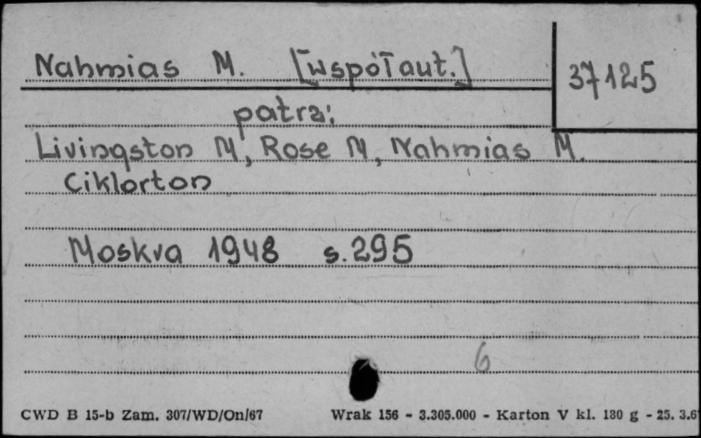 Nahmias M. [współaut.]
37125
patrz:
Livingston M, Rose M, Nahmias M.
Ciklorton
Moskva 1948 s. 295
6
CWD B 15-b Zam. 307/WD/On/67 Wrak 156 - 3.305.000 - Karton V kl. 180 g - 25. 3.6